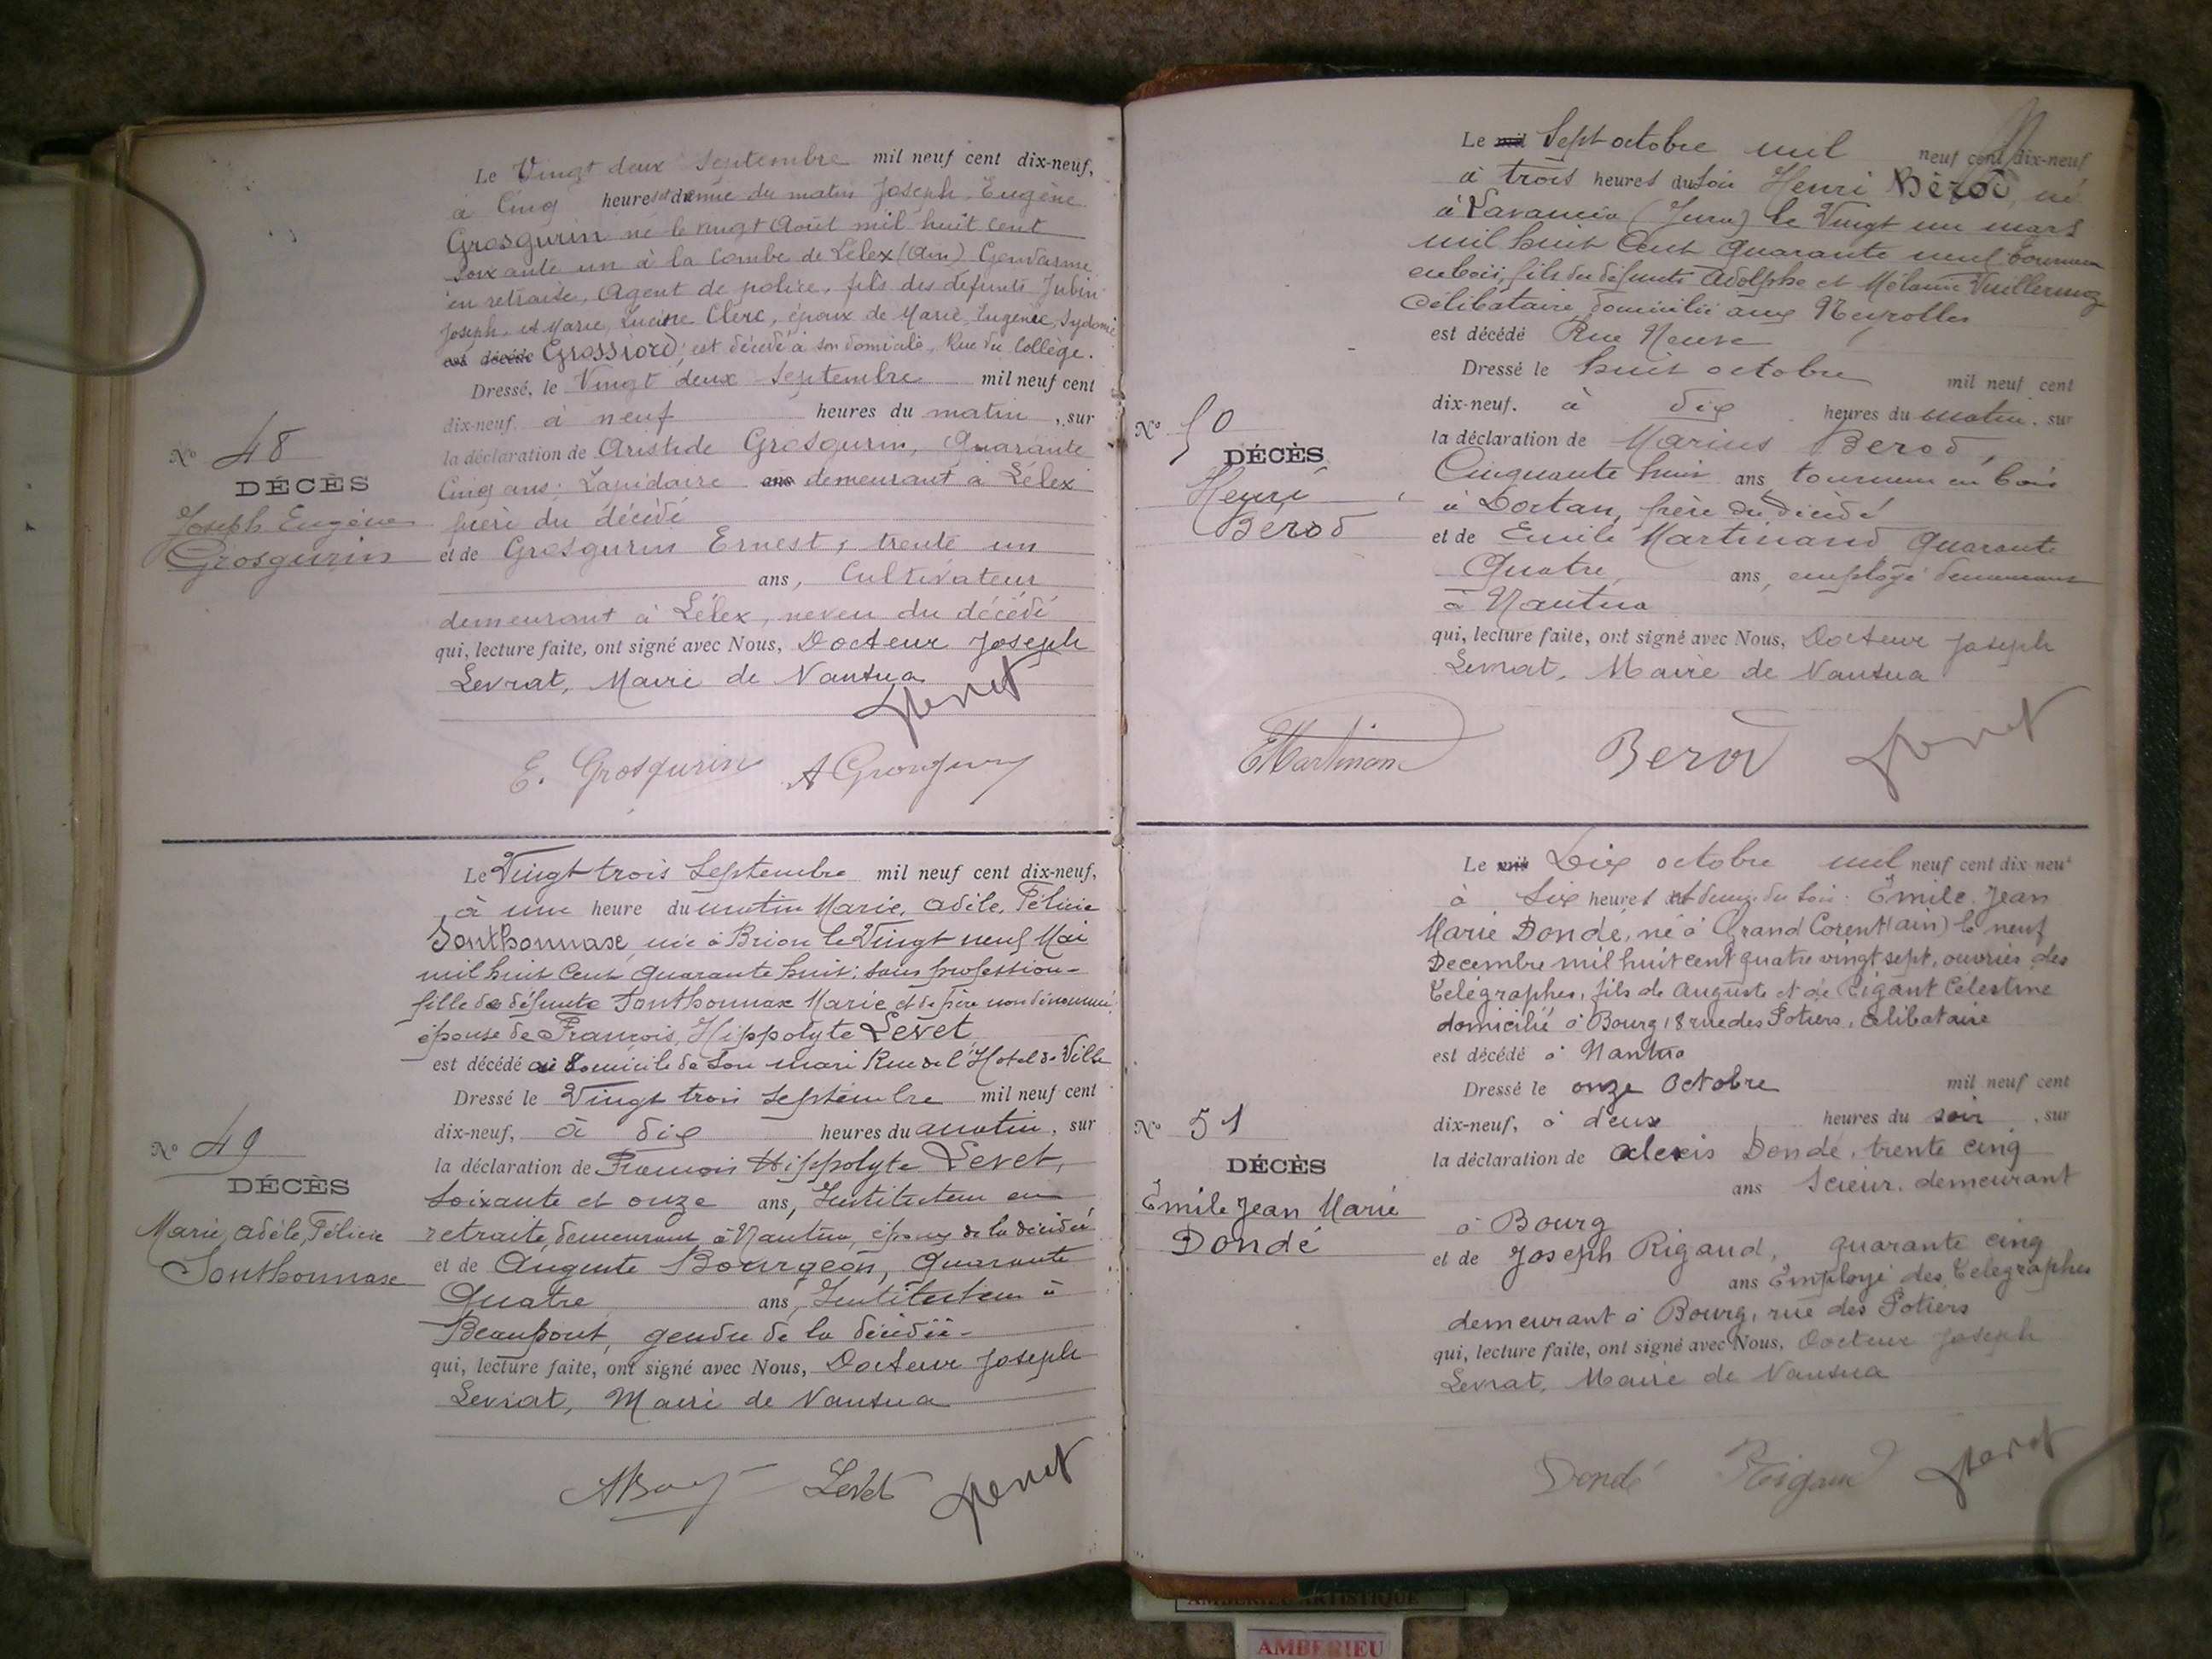 Le Vingt deux Septembre mil neuf cent dix-neuf,
à Cinq heures et demie du matin Joseph, Eugène
Grosgurin né le vingt Août mil huit cent
soixante un à la Combe de Lélex (Ain) Gendarme
en retraite, Agent de police, fils des défunts Jubin
Joseph et Marie, Lucine Clerc, époux de Marie, Eugénie, Sydonie
est décédé Grossiord; est décédé à son domicile, Rue du Collège.
Dressé, le Vingt deux Septembre mil neuf cent
dix-neuf à neuf heures du matin, sur
la déclaration de Aristide Grosgurin, Quarante
Cinq ans; Lapidaire ans demeurant à Lélex
frère du décédé
et de Grosgurin Ernest, trente un
ans, Cultivateur
demeurant à Lélex, neveu du décédé
qui, lecture faite, ont signé avec Nous, Docteur Joseph
Levrat, Maire de Nantua
E. Grosgurin
No 48
DÉCÈS
Joseph Eugène
Grosgurin
Le Vingt trois Septembre mil neuf cent dix-neuf,
à une heure du matin Marie, Adèle, Félicie
Sonthonnaxe, née à Brion le Vingt neuf Mai
mil huit Cent quarante huit; sans profession-
fille de défunte Sonthonnax Marie et de père non dénommé,
épouse de François, Hippolyte Levet
est décédé au domicile de son mari Rue de l'Hotel de Ville
Dressé le Vingt trois septembre mil neuf cent
dix-neuf, à dix heures du matin, sur
la déclaration de François Hippolyte Levet,
soixante et onze ans, Instituteur en
retraite, demeurant à Nantua, époux de la décédée
et de Auguste Bourgeon, Quarante
Quatre ans, Instituteur à
Beaupont, gendre de la décédée-
qui, lecture faite, ont signé avec Nous, Docteur Joseph
Levrat, Maire de Nantua
Levet
No 49
DÉCÈS
Marie, Adèle, Félicie
Sonthonnaxe
Le mil Sept octobre mil neuf cent dix-neuf
à trois heures du soir Henri Bérod, né
à Lavancia (Jura) le Vingt un mars
mil huit Cent quarante neuf tourneur
en bois, fils des défunts Adolphe et Mélanie Vuillermoz
Célibataire, domicilié aux Neyrolles
est décédé Rue Neuve
Dressé le huit octobre mil neuf cent
dix-neuf. à dix heures du matin, sur
la déclaration de Marius Berod,
Cinquante huit ans tourneur en bois
à Dortan, frère du décédé
et de Emile Martinand Quarante
Quatre, ans, employé demeurant
à Nantua
qui, lecture faite, ont signé avec Nous, Docteur Joseph
Levrat, Maire de Nantua
EMartinand Berod
No 50
DÉCÈS
Henri
Bérod
Le mil Dix octobre mil neuf cent dix neuf
à Six heures et demie du soir. Emile, Jean
Marie Dondé, né à Grand Corent (ain) le neuf
Décembre mil huit cent quatre vingt sept, ouvrier des
Télégraphes, fils de Auguste et de Rigant Célestine
domicilié à Bourg 18 rue des Potiers, Célibataire
est décédé à Nantua
Dressé le onze Octobre mil neuf cent
dix-neuf, à deux heures du soir, sur
la déclaration de Alexis Dondé, trente cinq
ans Scieur, demeurant
à Bourg
et de Joseph Rigaud, quarante cinq
ans Employé des Télégraphes
demeurant à Bourg, rue des Potiers
qui, lecture faite, ont signé avec Nous, Docteur Joseph
Levrat, Maire de Nantua
Dondé Rigaud
No 51
DÉCÈS
Emile Jean Marie
Dondé
AMBERIEU ARTISTIQUE
AMBERIEU